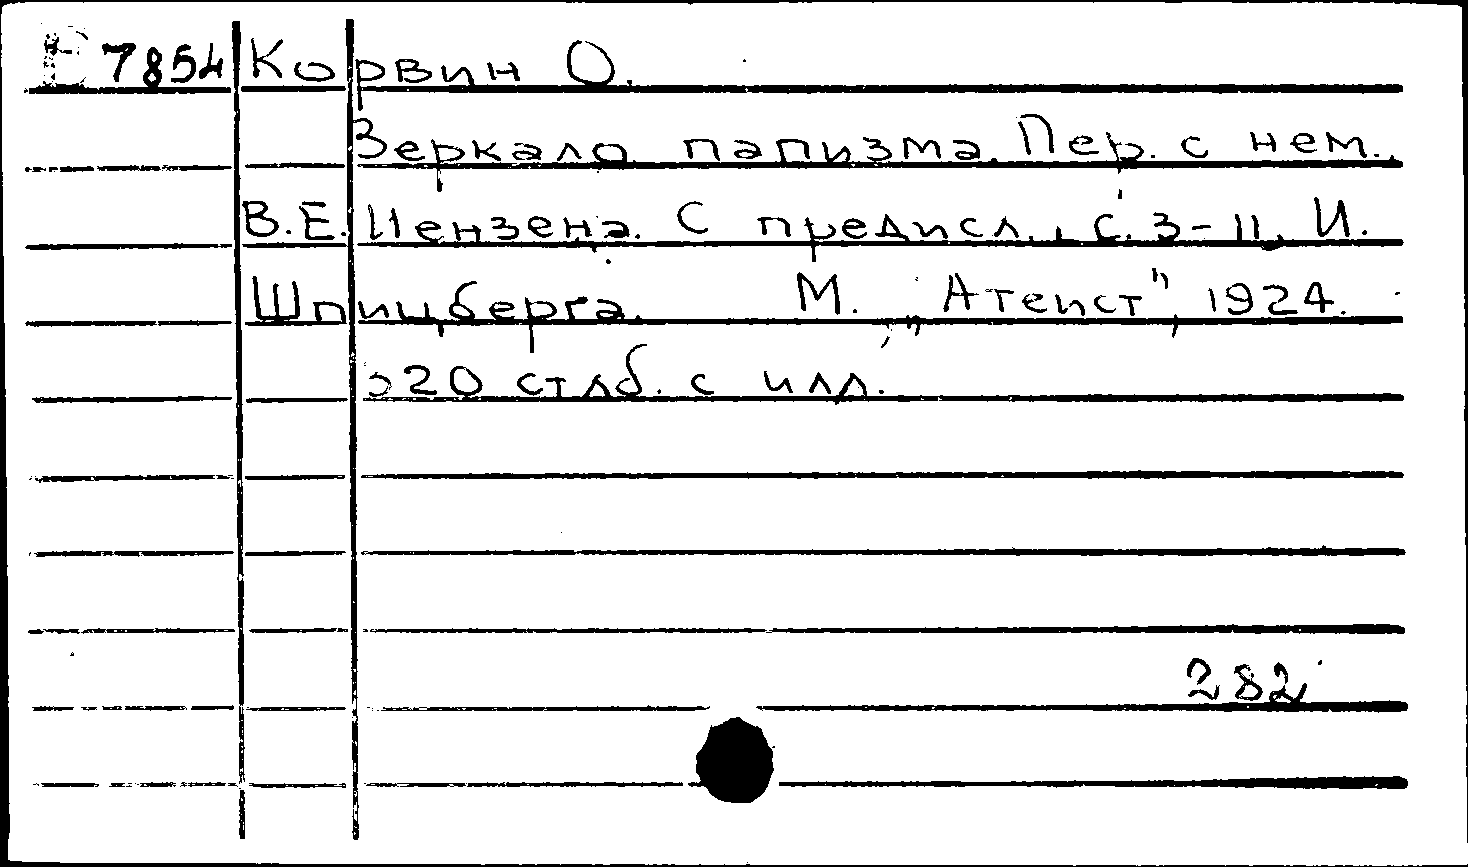 В 7854 Корвин О.
Зеркало папизма. Пер. с нем.
В.Е. Иензена. С предисл., с. 3-11, И.
Шпицберга. М., „Атеист", 1924.
520 стлб. с илл.
282